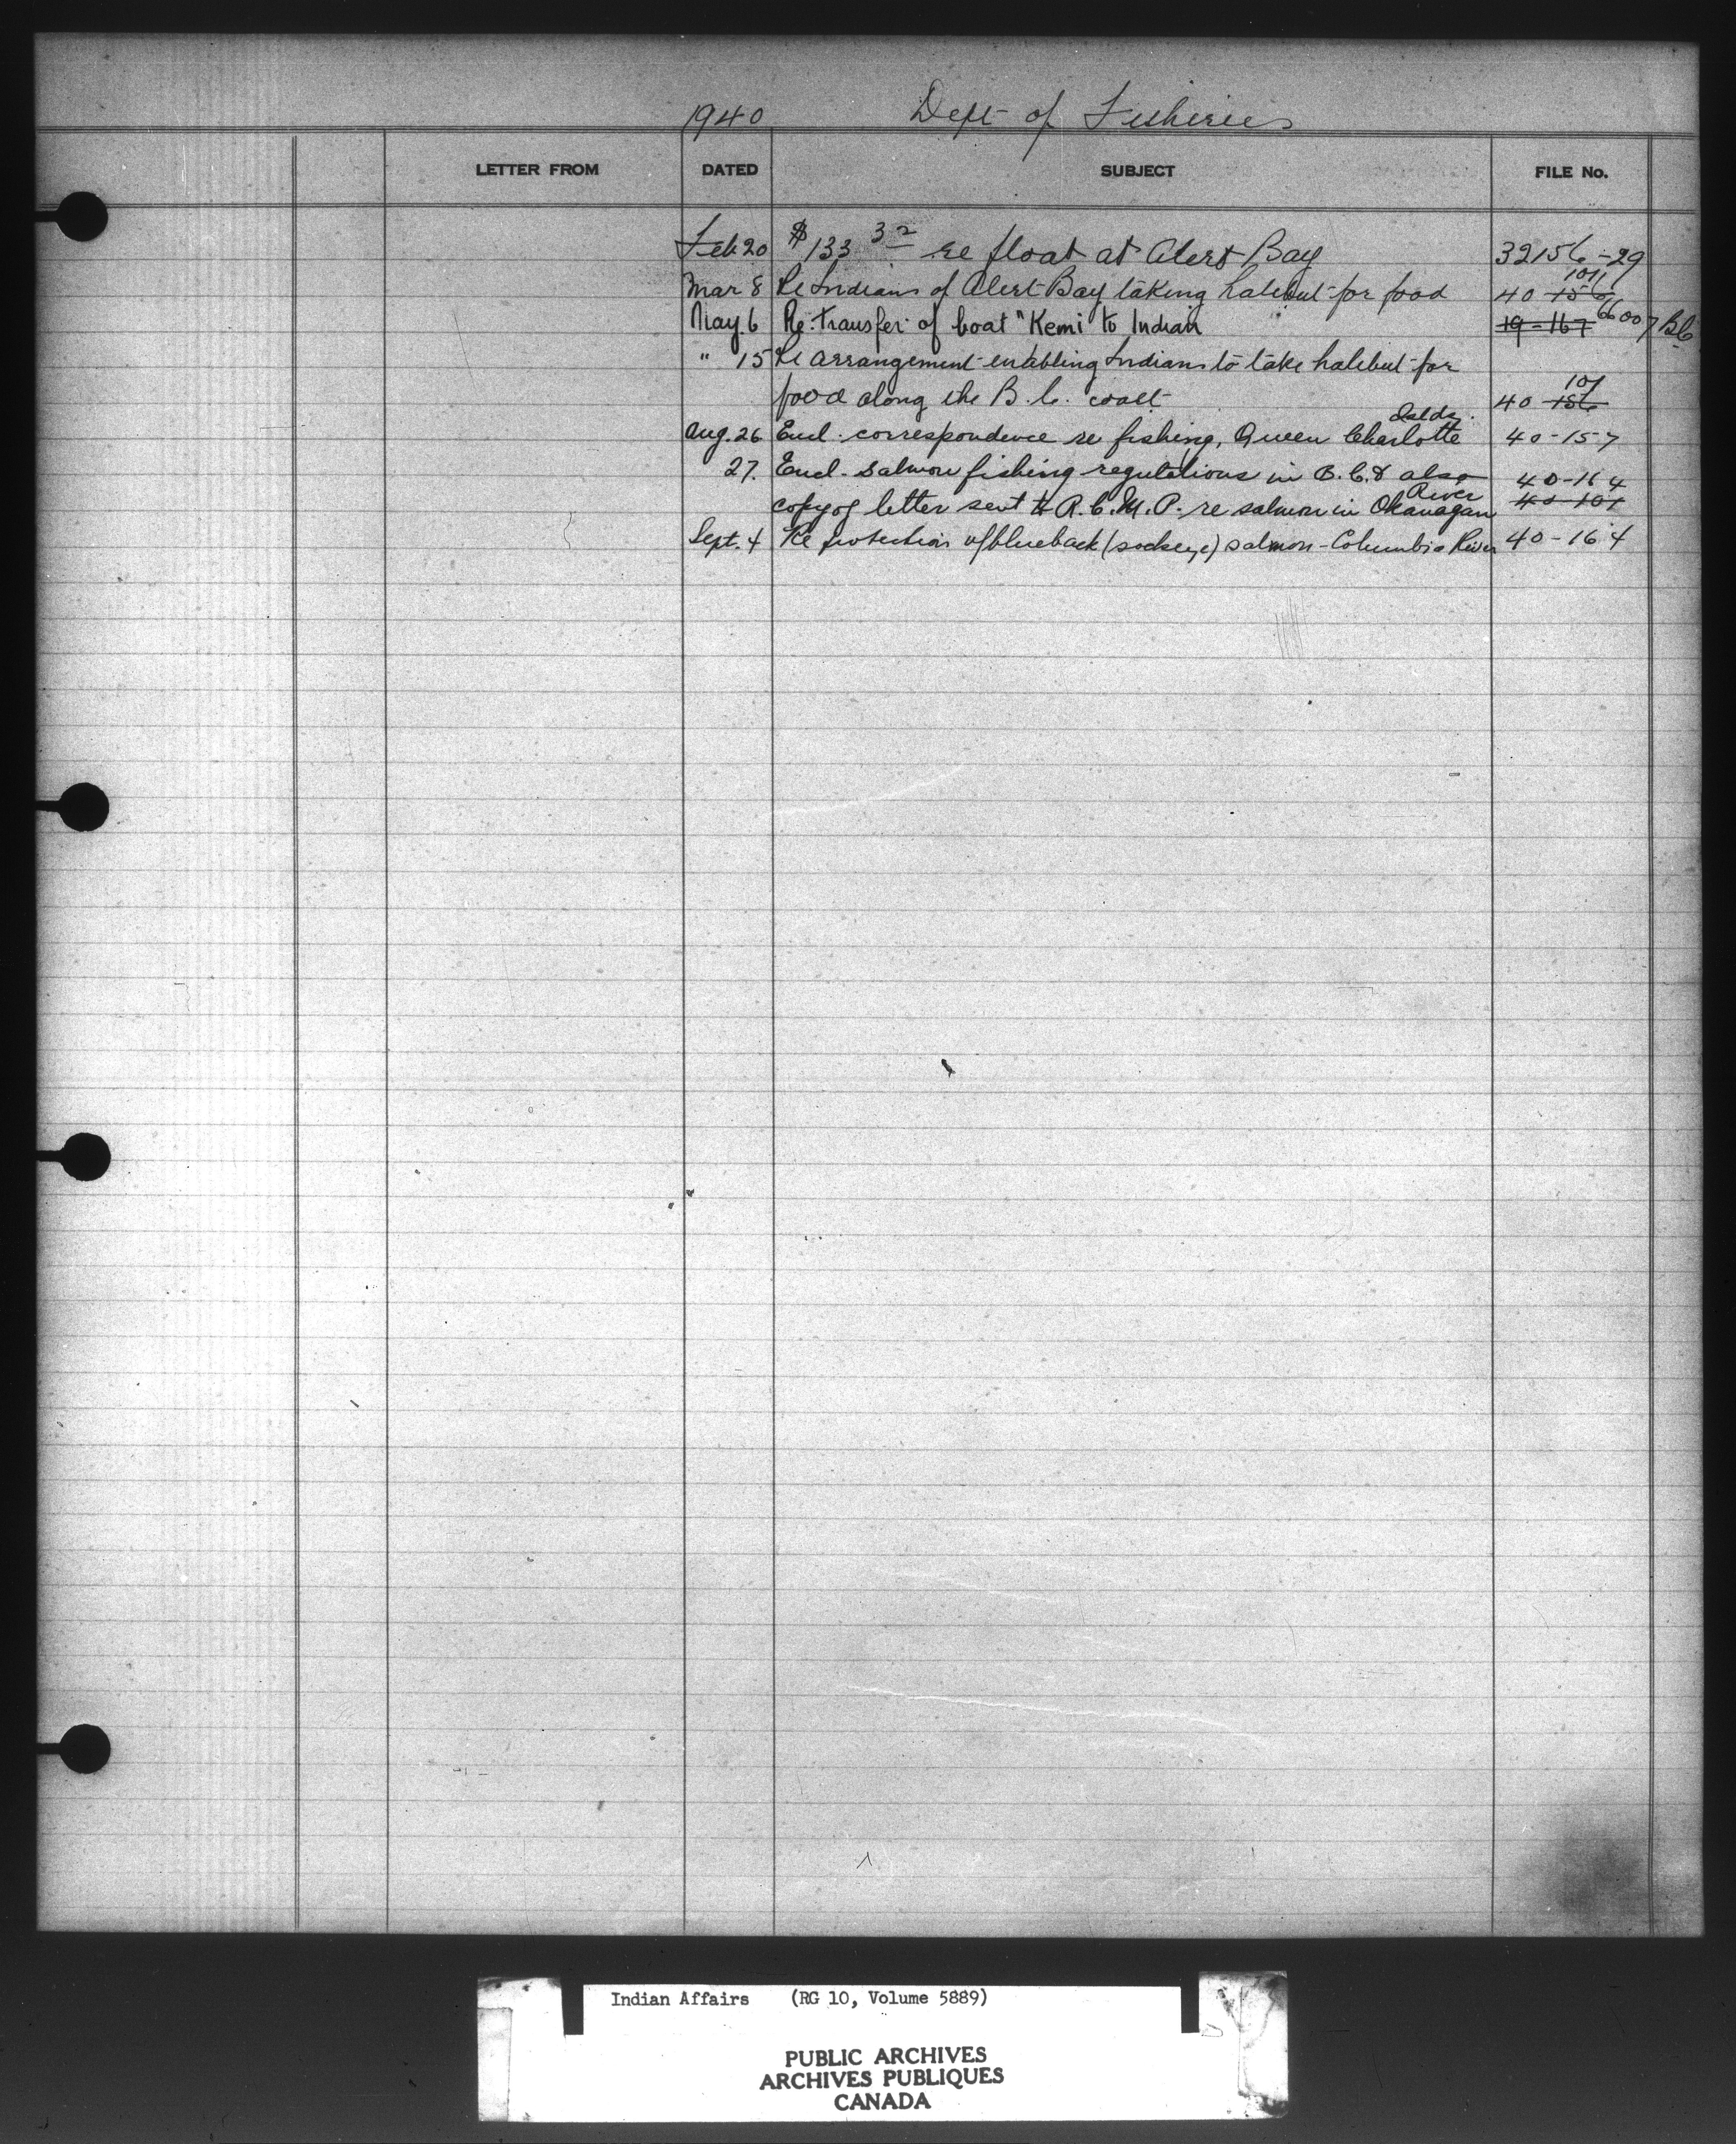 1940 Dept of Fisheries
LETTER FROM DATED SUBJECT FILE No.
Feb 20 $133 32 re float at Alert Bay 32156-29
Mar 8 Re Indians of Alert Bay taking halibut for food 40-156 101
May. 6 Re: transfer of boat "Kemi" to Indian 19-167 66007 BC
" 15 Re arrangement enabling Indians to take halibut for
food along the B.C. coast 40-156 101
Aug. 26 Encl. correspondence re fishing, Queen Charlotte Islds. 40-157
27. Encl. salmon fishing regulations in B.C. & also 40-164
copy of letter sent to R.C.M.P. re salmon in Okanagan River 40-101
Sept. 4 Re protection of blueback (sockeye) salmon - Columbia River 40-164
Indian Affairs (RG 10, Volume 5889)
PUBLIC ARCHIVES
ARCHIVES PUBLIQUES
CANADA